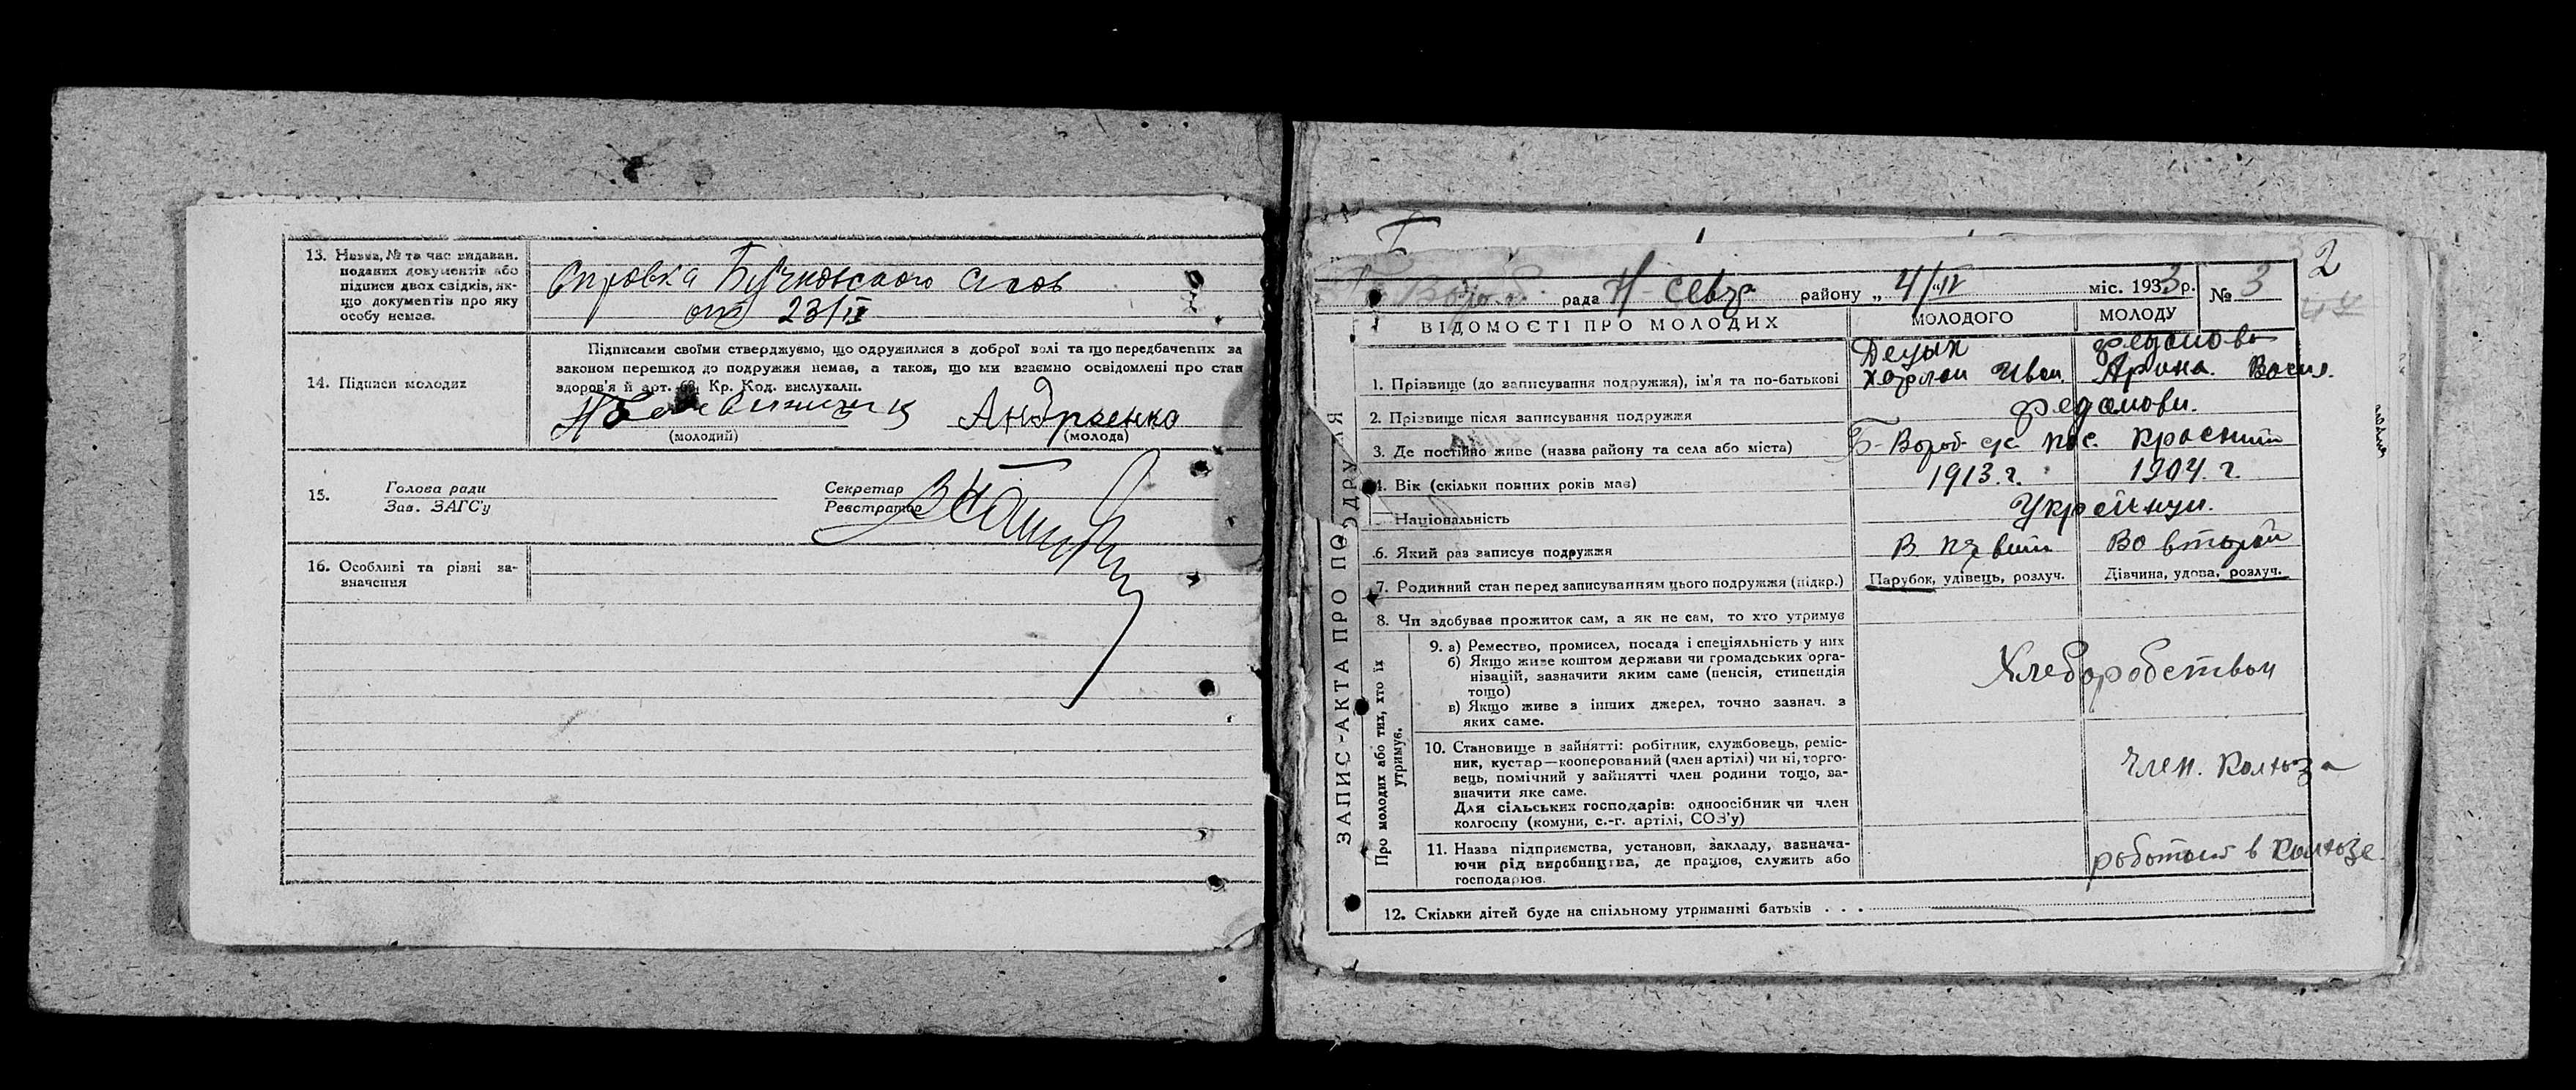 13. Назва, № та час видаван.
поданих документів або
підписи двох свідків, як-
що документів про яку
особу немає.
Справка Бучковского сгсов
от 23/II
14. Підписи молодих
Підписами своїми стверджуємо, що одружилися з доброї волі та що передбачених за
законом перешкод до подружжя немає, а також, що ми взаємно освідомлені про стан
здоров'я й арт. Кр. Код. вислухали.
Андреенко
(молодий) (молода)
15. Голова ради
Зав. ЗАГС'у
Секретар
Реєстратор
16. Особливі та рівні за-
значення
I
2
рада Н-Севр району „ 4/IV " міс. 1933 р. № 3
ВІДОМОСТІ ПРО МОЛОДИХ МОЛОДОГО МОЛОДУ
ЗАПИС-АКТА ПРО ПОДРУЖЖЯ
1. Прізвище (до записування подружжя), ім'я та по-батькові
Харлан Иван.
Федомова
Арина. Васил.
2. Прізвище після записування подружжя
Федомови.
3. Де постійно живе (назва району та села або міста)
Б-Вороб с/с пос. Красний
4. Вік (скільки повних років має) 1913 г. 1904. г.
Національність Украйнци.
6. Який раз записує подружжя В первий Во второй
7. Родинний стан перед записуванням цього подружжя (підкр.) Парубок, удівець, розлуч. Дівчина, удова, розлуч.
8. Чи здобував прожиток сам, а як не сам, то хто утримує
Про молодих або тих, хто їх
утримує.
9. а) Ремество, промисел, посада і спеціяльність у них
б) Якщо живе коштом держави чи громадських орга-
нізацій, зазначити яким саме (пенсія, стипендія
тощо)
в) Якщо живе з інших джерел, точно зазнач. з
яких саме.
Хлеборобством
10. Становище в зайнятті: робітник, службовець, реміс-
ник, кустар—кооперований (член артілі) чи ні, торго-
вець, помічний у зайнятті член родини тощо, за-
значити яке саме.
Для сільських господарів: одноосібник чи член
колгоспу (комуни, с.-г. артілі, СОЗ'у)
член. колхоза
11. Назва підприємства, установи, закладу, зазнача-
ючи рід виробництва, де працює, служить або
господарює.
работает в колхозе
12. Скільки дітей буде на спільному утриманні батьків . . .